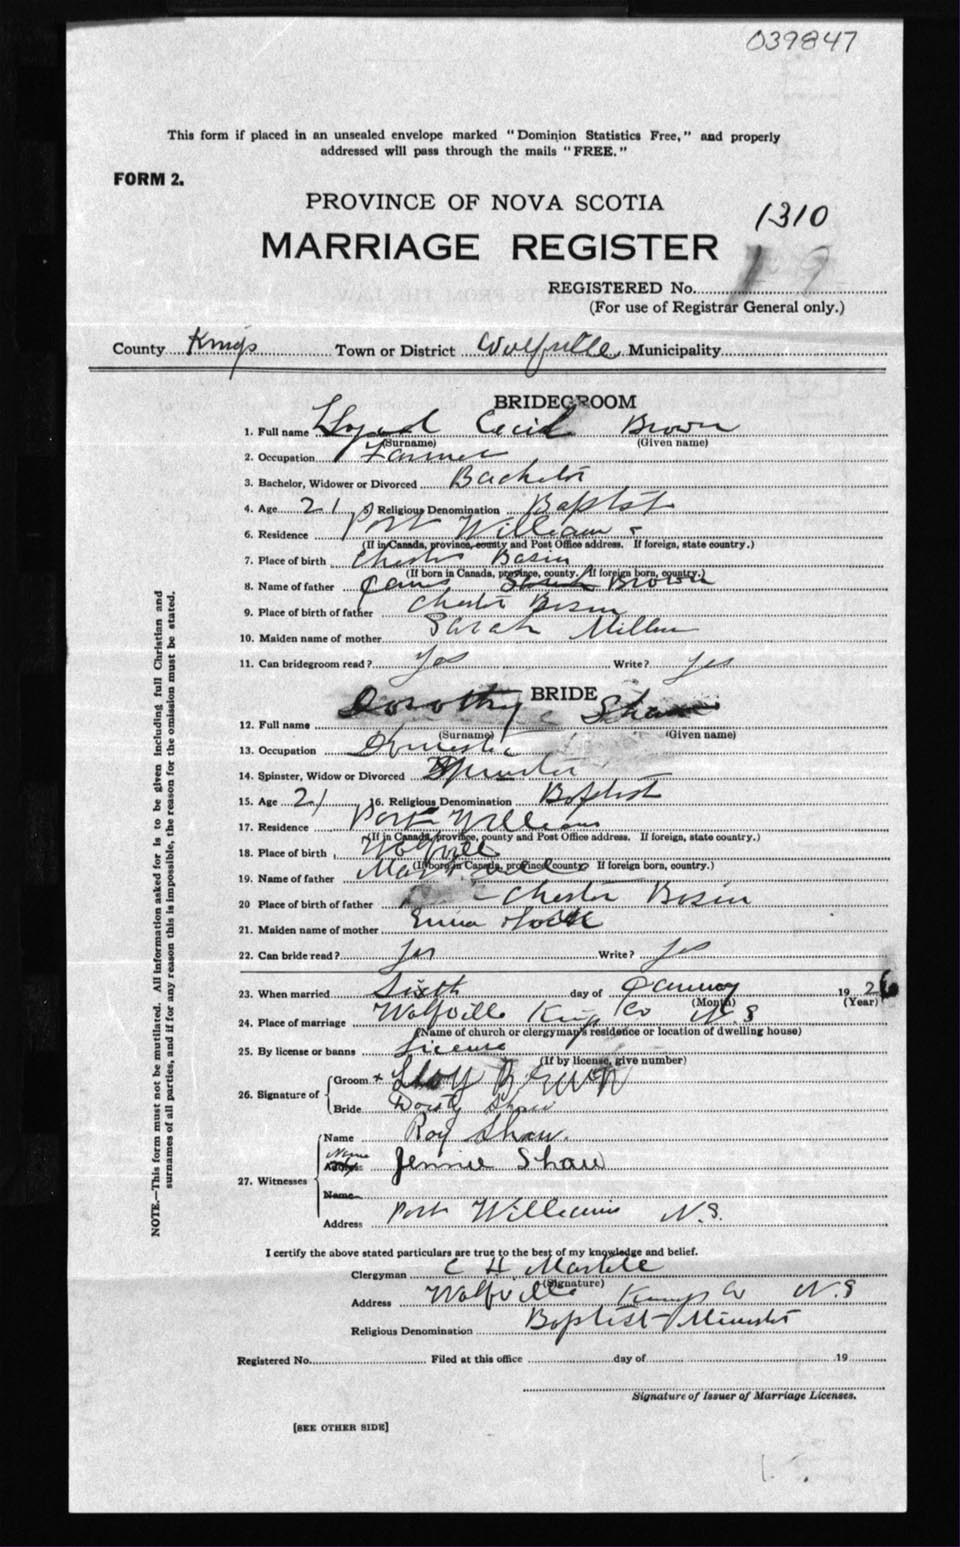 039847
This form if placed in an unsealed envelope marked "Dominion Statistics Free," and properly
addressed will pass through the mails "FREE."
FORM 2.
PROVINCE OF NOVA SCOTIA
1310
MARRIAGE REGISTER
REGISTERED No.
(For use of Registrar General only.)
County Kings Town or District Wolfville Municipality
BRIDEGROOM
1. Full name Lloyd Cecil Brown
(Surname) (Given name)
2. Occupation Farmer
3. Bachelor, Widower or Divorced Bachelor
4. Age 21 5) Religious Denomination Baptist
6. Residence Port Williams
(If in Canada, province, county and Post Office address. If foreign, state country.)
7. Place of birth Chester Basin
(If born in Canada, province, county. If foreign born, country.)
8. Name of father Brown
9. Place of birth of father Chester Basin
10. Maiden name of mother Sarah Millen
11. Can bridegroom read? Yes Write? Yes
BRIDE
12. Full name Dorothy Shaw
(Surname) (Given name)
13. Occupation Domestic
14. Spinster, Widow or Divorced Spinster
15. Age 21 16. Religious Denomination Baptist
17. Residence Port Williams
(If in Canada, province, county and Post Office address. If foreign, state country.)
18. Place of birth Wolfville
(If born in Canada, province county If foreign born, country.)
19. Name of father
20 Place of birth of father Chester Basin
21. Maiden name of mother Emma
22. Can bride read? Yes Write? Yes
23. When married Sixth day of January 19 26
(Month) (Year)
24. Place of marriage Wolfville Kings Co N.S
(Name of church or clergyman's residence or location of dwelling house)
25. By license or banns License
(If by license, give number)
26. Signature of Groom + Lloy Brown
Bride Shaw
27. Witnesses Name Roy Shaw.
Name Jennie Shaw
Name
Address Port Williams N.S.
I certify the above stated particulars are true to the best of my knowledge and belief.
Clergyman C H Martell
(Signature)
Address Wolfville Kings Co N.S
Religious Denomination Baptist Minister
Registered No. Filed at this office day of 19
Signature of Issuer of Marriage Licenses.
[SEE OTHER SIDE]
NOTE.—This form must not be mutilated. All information asked for is to be given including full Christian and
surnames of all parties, and if for any reason this is impossible, the reason for the omission must be stated.